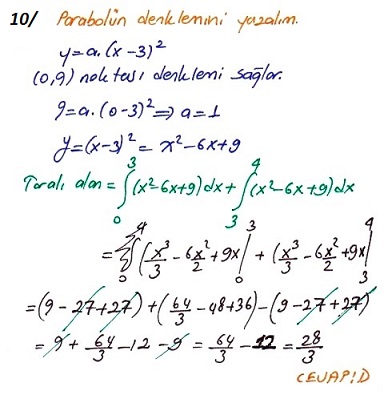 10/ Parabolün denklemini yazalım.
y=a.(x-3)²
(0,9) noktası denklemi sağlar.
9=a.(0-3)² ⇒ a=1
y=(x-3)²=x²-6x+9
Taralı alan = ∫₀³(x²-6x+9)dx + ∫₃⁴(x²-6x+9)dx
= (x³/3 - 6x²/2 + 9x|₀³ + (x³/3 - 6x²/2 + 9x|₃⁴
=(9-27+27)+(64/3-48+36)-(9-27+27)
= 9+64/3-12-9 = 64/3-12 = 28/3
CEVAP:D